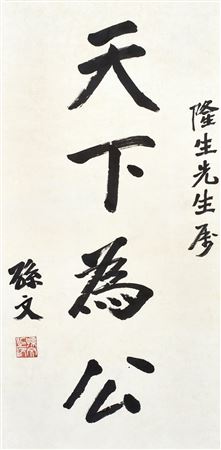 隆生先生属
天下為公
孫文